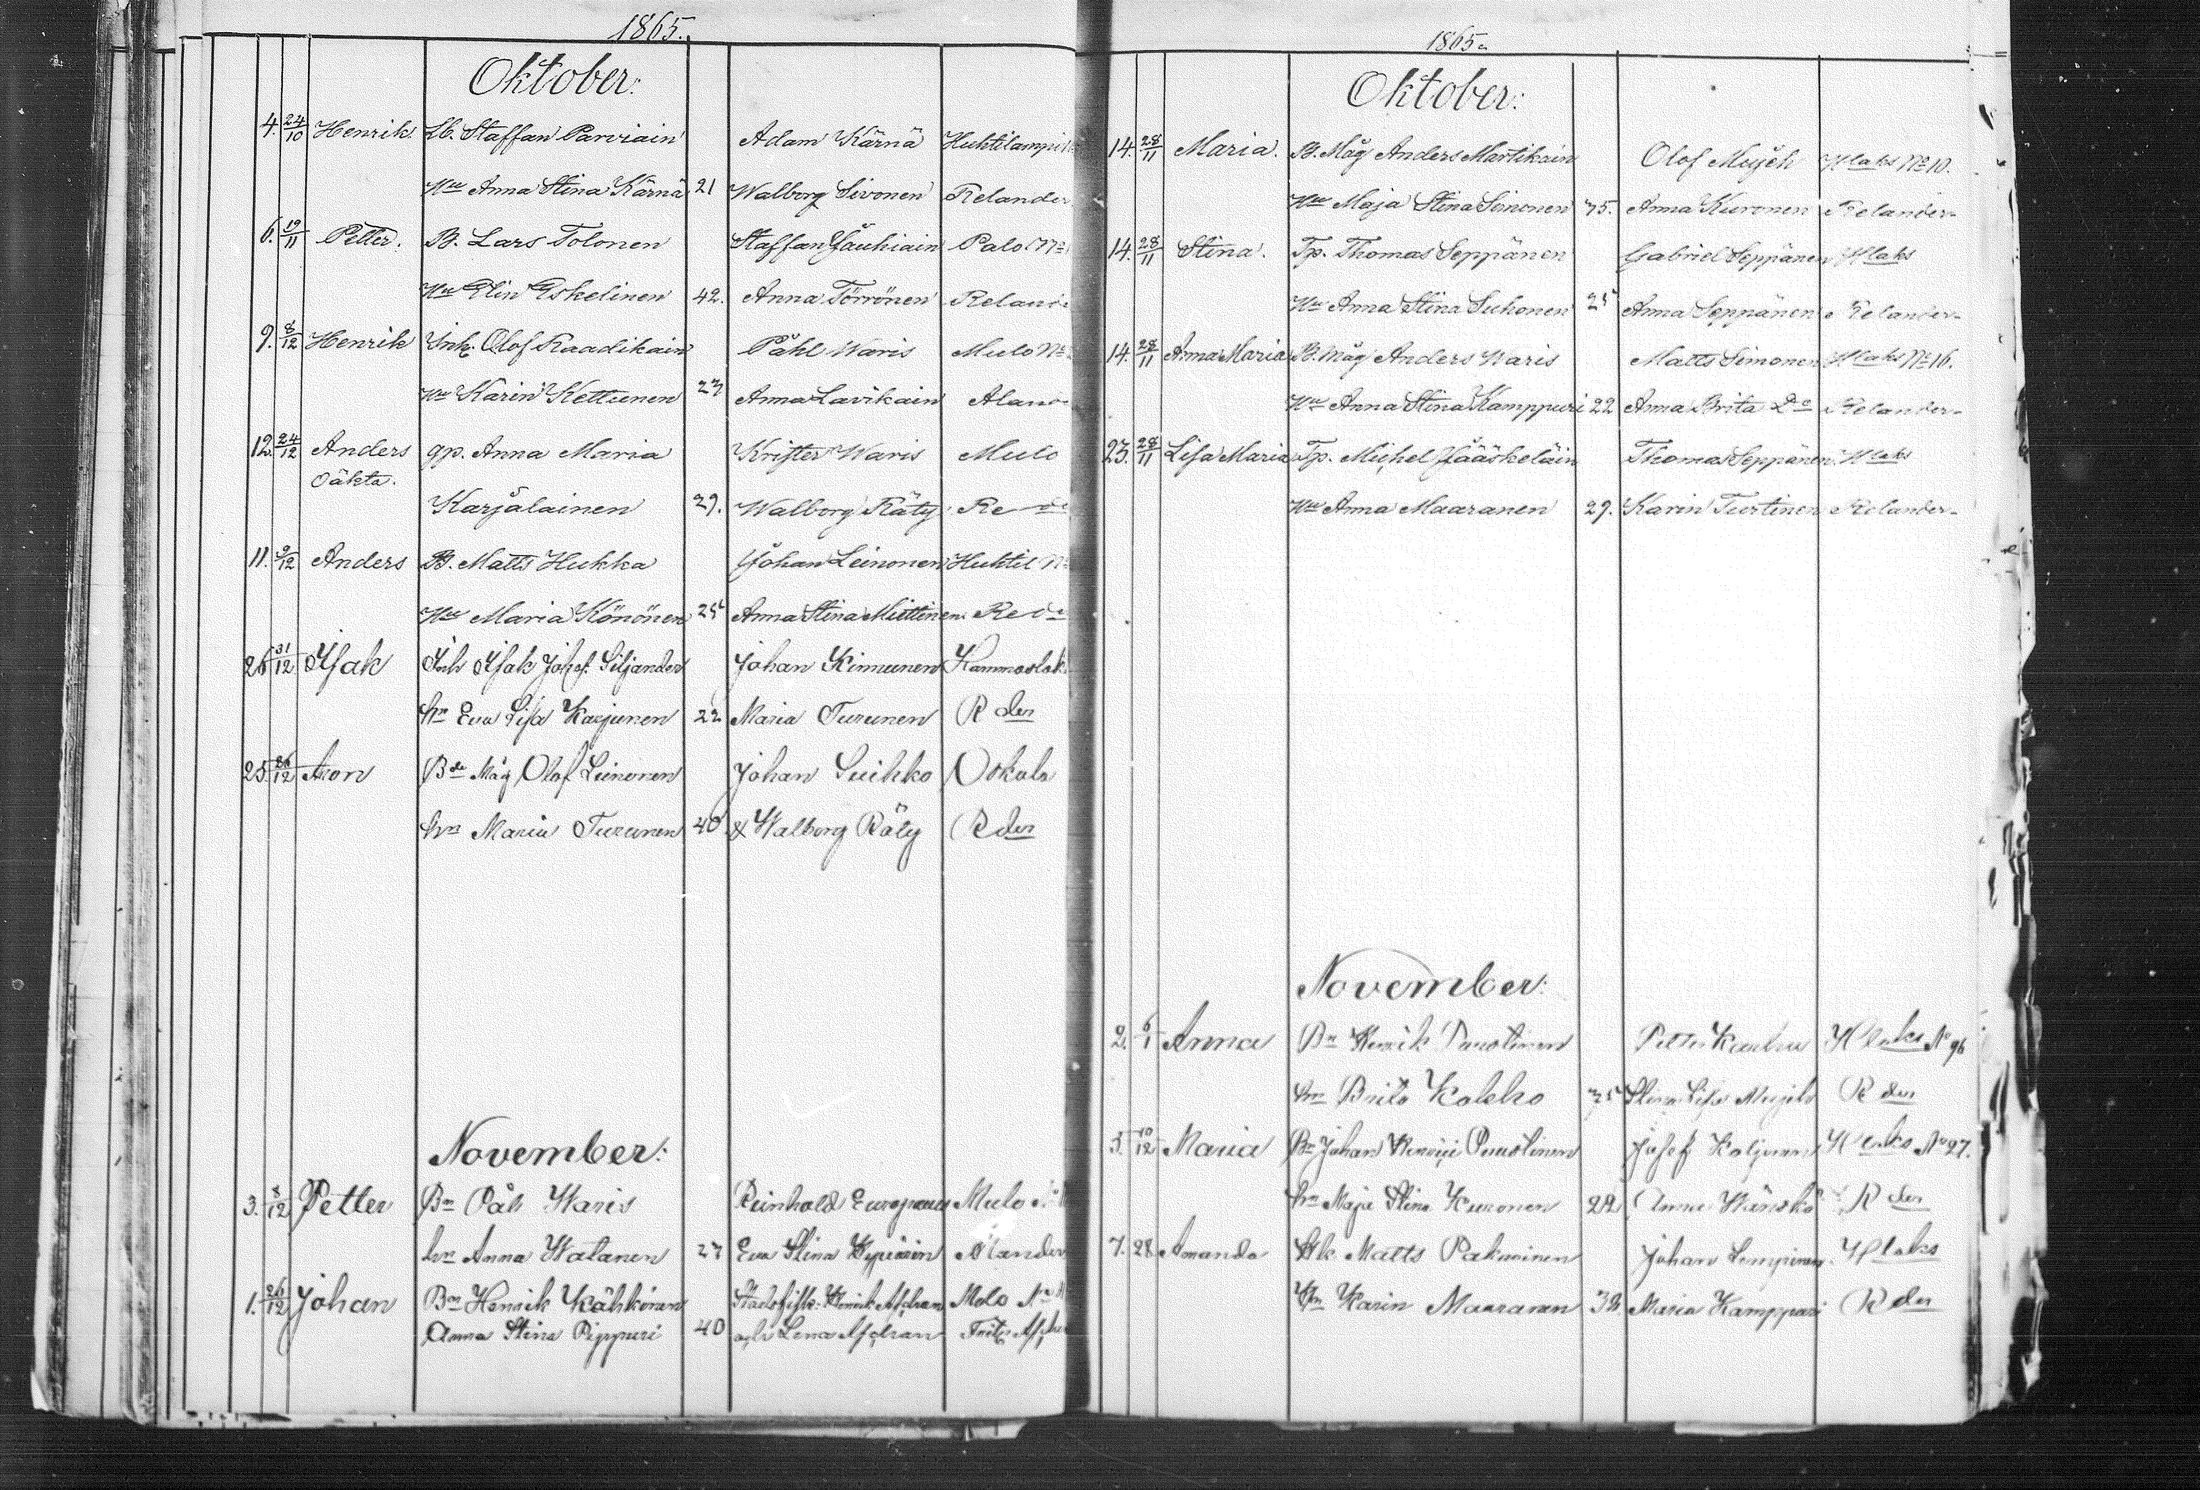 1865.
Oktober:
4. 24/10 Henrik Lb. Staffan Parviain Adam Kärnä Huhtilampi
Hu Anna Stina Kärnä 21 Walborg Sivonen Relander
6. 19/11 Petter. B. Lars Tolonen Staffan Jäuhiain Palo No
Hu Elin Eskelinen 42. Anna Törrönen Reland
9. 8/12 Henrik Inh. Olof Raadikain Påhl Waris Mulo No
Hu Karin Kettunen 23 Anna Lavikain
12. 24/12 Anders gp. Anna Maria Krister Waris Mulo
oäkta.
Karjalainen 29. Walborg Räty Re de
11. 9/12 Anders B. Matts Hukka Johan Leinonen Huhtil No
Hu Maria Könönen 25 Anna Stina Miettinen Re de
26 31/12 Isak Inh Isak Josef Siljander Johan Kinnunen
hn Eva Lisa Karjunen 22 Maria Turunen R der
25 26/12 Aron Bde Måg Olof Leinonen Johan Suihko Oskola
hn Maria Turunen 40 & Walborg Räty R der
November:
3. 8/12 Petter Bn Påhl Waris Reinhold Europaeus Mulo
hn Anna Watanen 27 Eva Stina
1. 26/12 Johan Bn Henrik Kähkönen Henrik Aschan Molo No
Anna Stina Pippuri 40 och Lena Aschan
1865.
Oktober:
14. 28/11 Maria. B. Måg Anders Martikain Olof Mujeh Hlaks No 10.
Hu Maja Stina Simonen 35. Anna Kuronen Relander
14. 28/11 Stina. Tp. Thomas Seppänen Gabriel Seppänen Hlaks
Hu Anna Stina Suhonen 25 Anna Seppänen Relander
14. 28/11 Anna Maria B. Måg Anders Waris Matts Simonen Hlaks No 16.
Hu Anna Stina Kamppuri 22 Anna Brita Do Relander
23. 28/11 Lisa Maria Tp. Michel Jääskeläin Thomas Seppänen Hlaks
Hu Anna Maaranen 29. Karin Turtinen Relander
November:
2. 6/1 Anna Bn Henrik Puustinen Petter Hlaks No 96
hn Brita Kokko 35 Stina Lisa Mujeh R der
3. 10/12 Maria Bn Johan Henric Puustinen Josef Hlaks No 27.
hn Maja Stina Kuronen 22 Anna R der
7. 28 Amanda Matts Pakarinen Johan Hlaks
hn Karin Maaranen 32 Maria Kamppuri R der